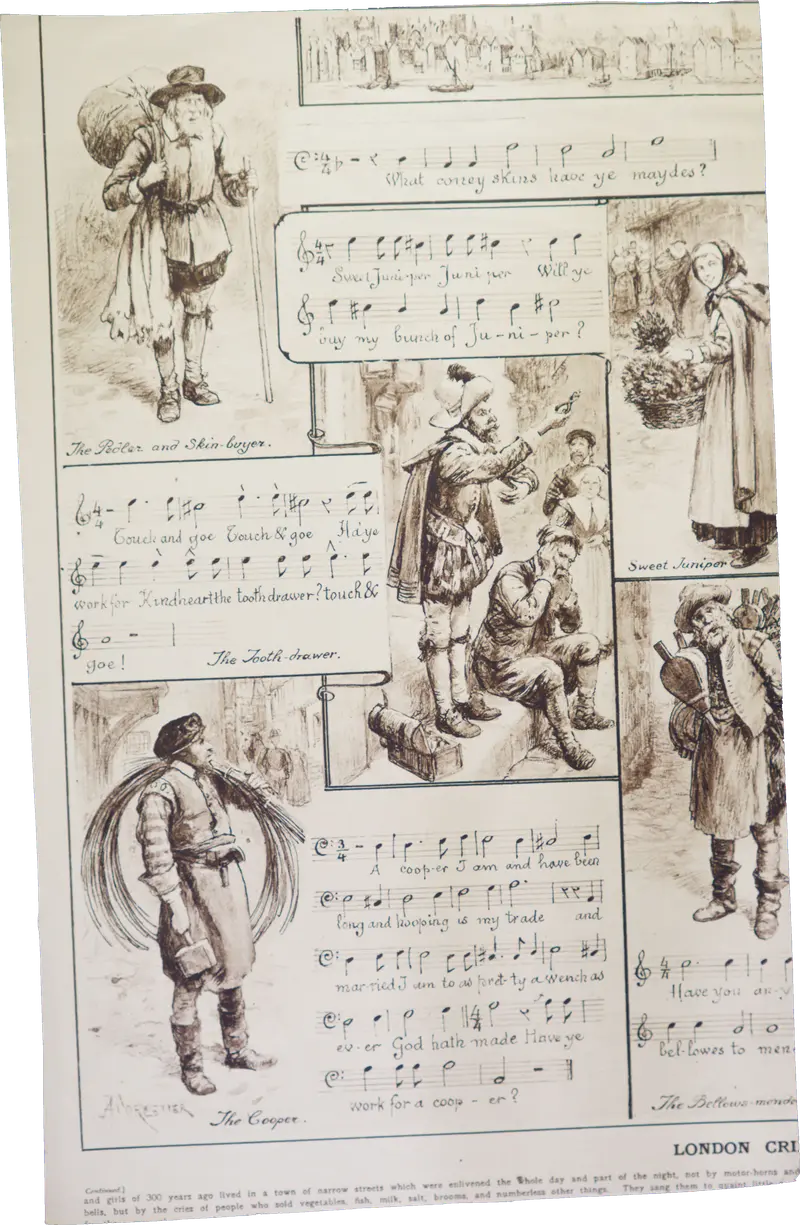 What coney skins have ye maydes?
Sweet Juniper Juniper Will ye
buy my bunch of Ju-ni-per?
The Pedler and Skin-buyer.
Sweet Juniper
Touch and goe Touch & goe Ha'ye
work for Kindheart the tooth drawer? touch &
goe!
The Tooth-drawer.
A coop-er I am and have been
long and hooping is my trade and
mar-ried I am to as pret-ty a wench as
ev-er God hath made Have ye
work for a coop-er?
A FORESTIER
The Cooper.
Have you an-y
bel-lowes to men
The Bellows-mende
LONDON CRI
Continued.]
and girls of 300 years ago lived in a town of narrow streets which were enlivened the whole day and part of the night, not by motor-horns and
bells, but by the cries of people who sold vegetables, fish, milk, salt, brooms, and numberless other things. They sang them to quaint little